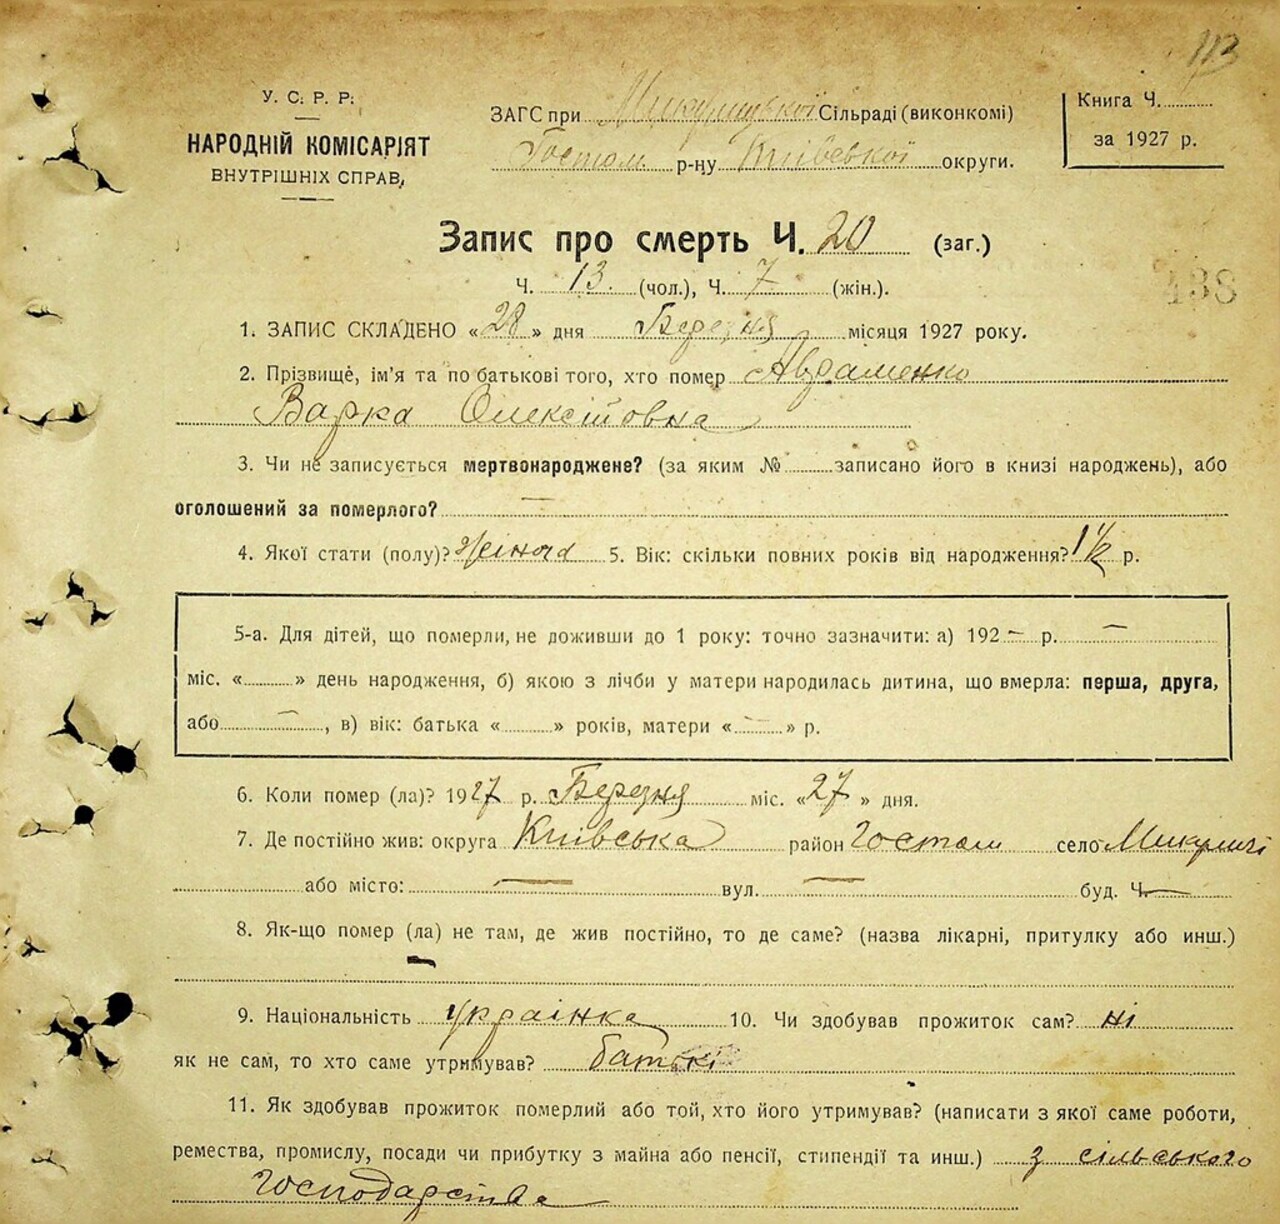 113
У. С. Р. Р.
НАРОДНІЙ КОМІСАРІЯТ
ВНУТРІШНІХ СПРАВ,
ЗАГС при Микулицької Сільраді (виконкомі)
Гостом. р-ну Київської округи.
Книга Ч.
за 1927 р.
Запис про смерть Ч. 20 (заг.)
Ч. 13. (чол.), Ч. 7 (жін.).
438
1. ЗАПИС СКЛАДЕНО «28» дня Березня місяця 1927 року.
2. Прізвище, ім'я та по батькові того, хто помер Авраменко
Варка Олексіївна
3. Чи не записується мертвонароджене? (за яким № записано його в книзі народжень), або
оголошений за померлого? —
4. Якої стати (полу)? жіноча 5. Вік: скільки повних років від народження? 1 1/2 р.
5-а. Для дітей, що померли, не доживши до 1 року: точно зазначити: а) 192 — р. —
міс. « » день народження, б) якою з лічби у матери народилась дитина, що вмерла: перша, друга,
або — , в) вік: батька « » років, матери « — » р.
6. Коли помер (ла)? 1927 р. Березня міс. «27» дня.
7. Де постійно жив: округа Київська район Гостом село Микуличі
або місто: — вул. — буд. Ч. —
8. Як-що помер (ла) не там, де жив постійно, то де саме? (назва лікарні, притулку або инш.)
—
9. Національність українка 10. Чи здобував прожиток сам? ні
як не сам, то хто саме утримував? батькі
11. Як здобував прожиток померлий або той, хто його утримував? (написати з якої саме роботи,
ремества, промислу, посади чи прибутку з майна або пенсії, стипендії та инш.) з сільського
господарства